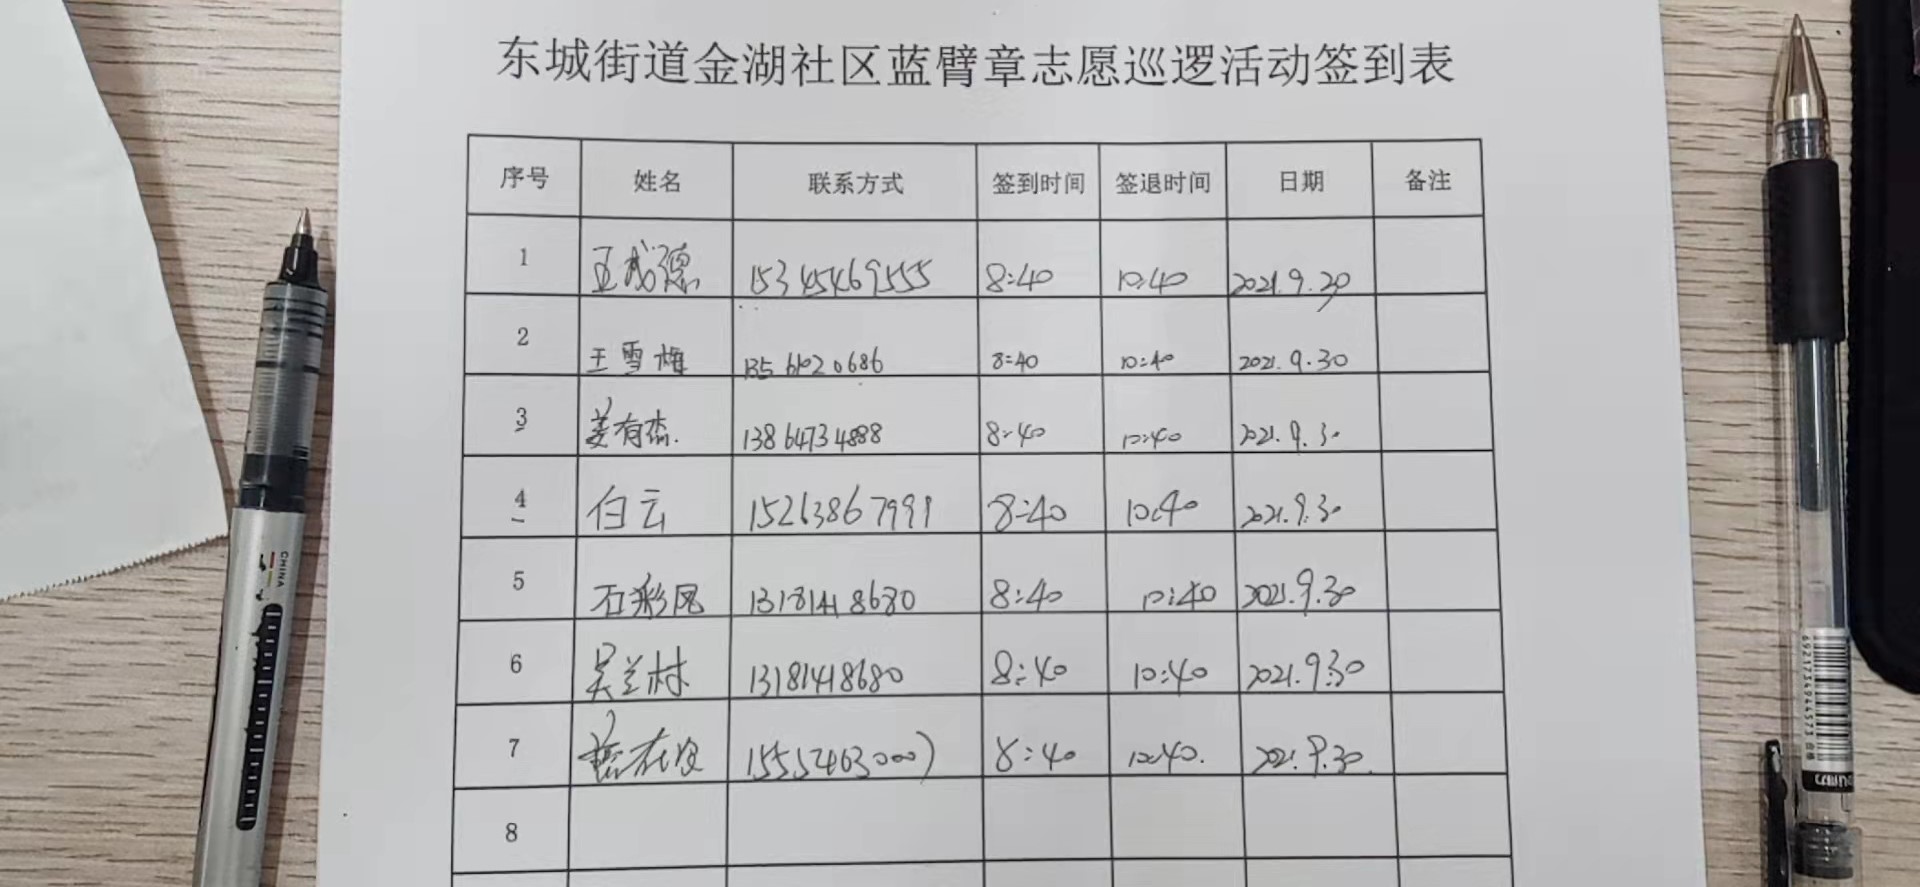 东城街道金湖社区蓝臂章志愿巡逻活动签到表
序号 姓名 联系方式 签到时间 签退时间 日期 备注
1 王成德 15345469555 8:40 10:40 2021.9.30
2 王雪梅 13561020686 8:40 10:40 2021.9.30
3 姜有杰. 13864734888 8:40 10:40 2021.9.30
4 白云 15263867991 8:40 10:40 2021.9.30
5 石彩凤 13181418680 8:40 10:40 2021.9.30
6 吴兰村 13181418680 8:40 10:40 2021.9.30
7 8:40 10:40. 2021.9.30.
8
CHINA